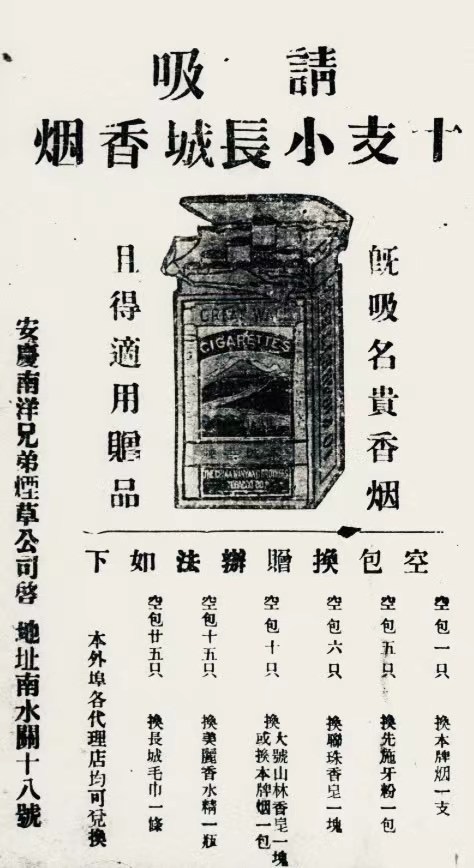 請吸
十支小長城香烟
既吸名貴香烟
且得適用贈品
GREAT WALL
CIGARETTES
THE CHINA NANYANG BROTHERS
TOBACCO CO
空包換贈辦法如下
空包一只 換本牌烟一支
空包五只 換先施牙粉一包
空包六只 換聯珠香皂一塊
空包十只 換大號山林香皂一塊
或換本牌烟一包
空包十五只 換美麗香水精一瓶
空包廿五只 換長城毛巾一條
本外埠各代理店均可兌換
安慶南洋兄弟煙草公司啓 地址南水關十八號